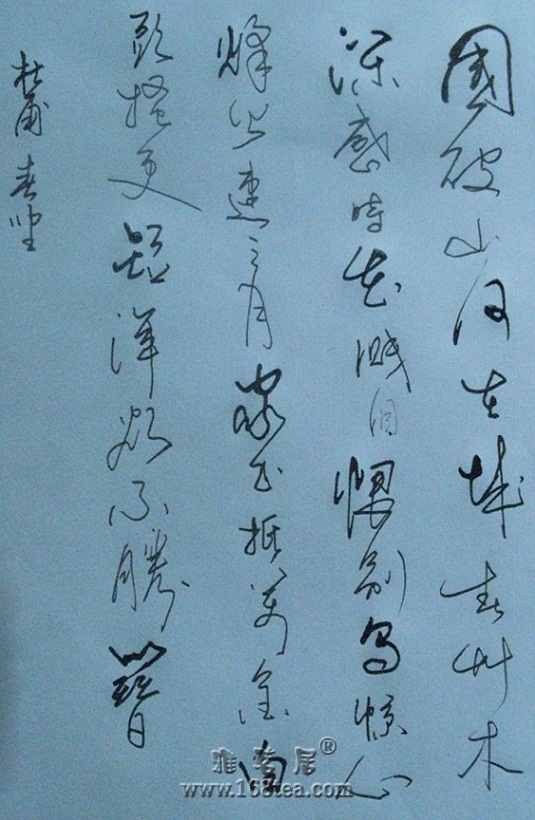 國破山河在城春艸木
深感时花溅泪恨别鸟惊心
烽火連三月家书抵萬金白
头搔更短浑欲不勝簪
杜甫 春望
雅茗居®
www.168tea.com